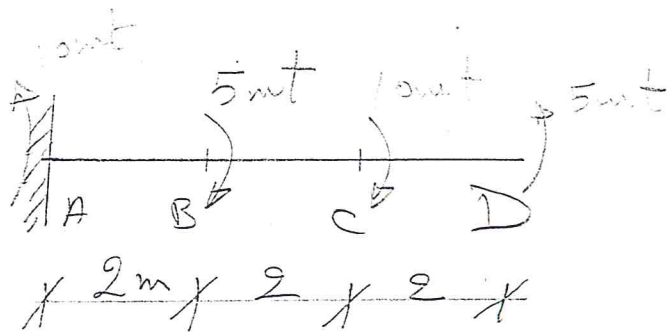 10mt
5mt 10mt 5mt
A B C D
2m 2 2